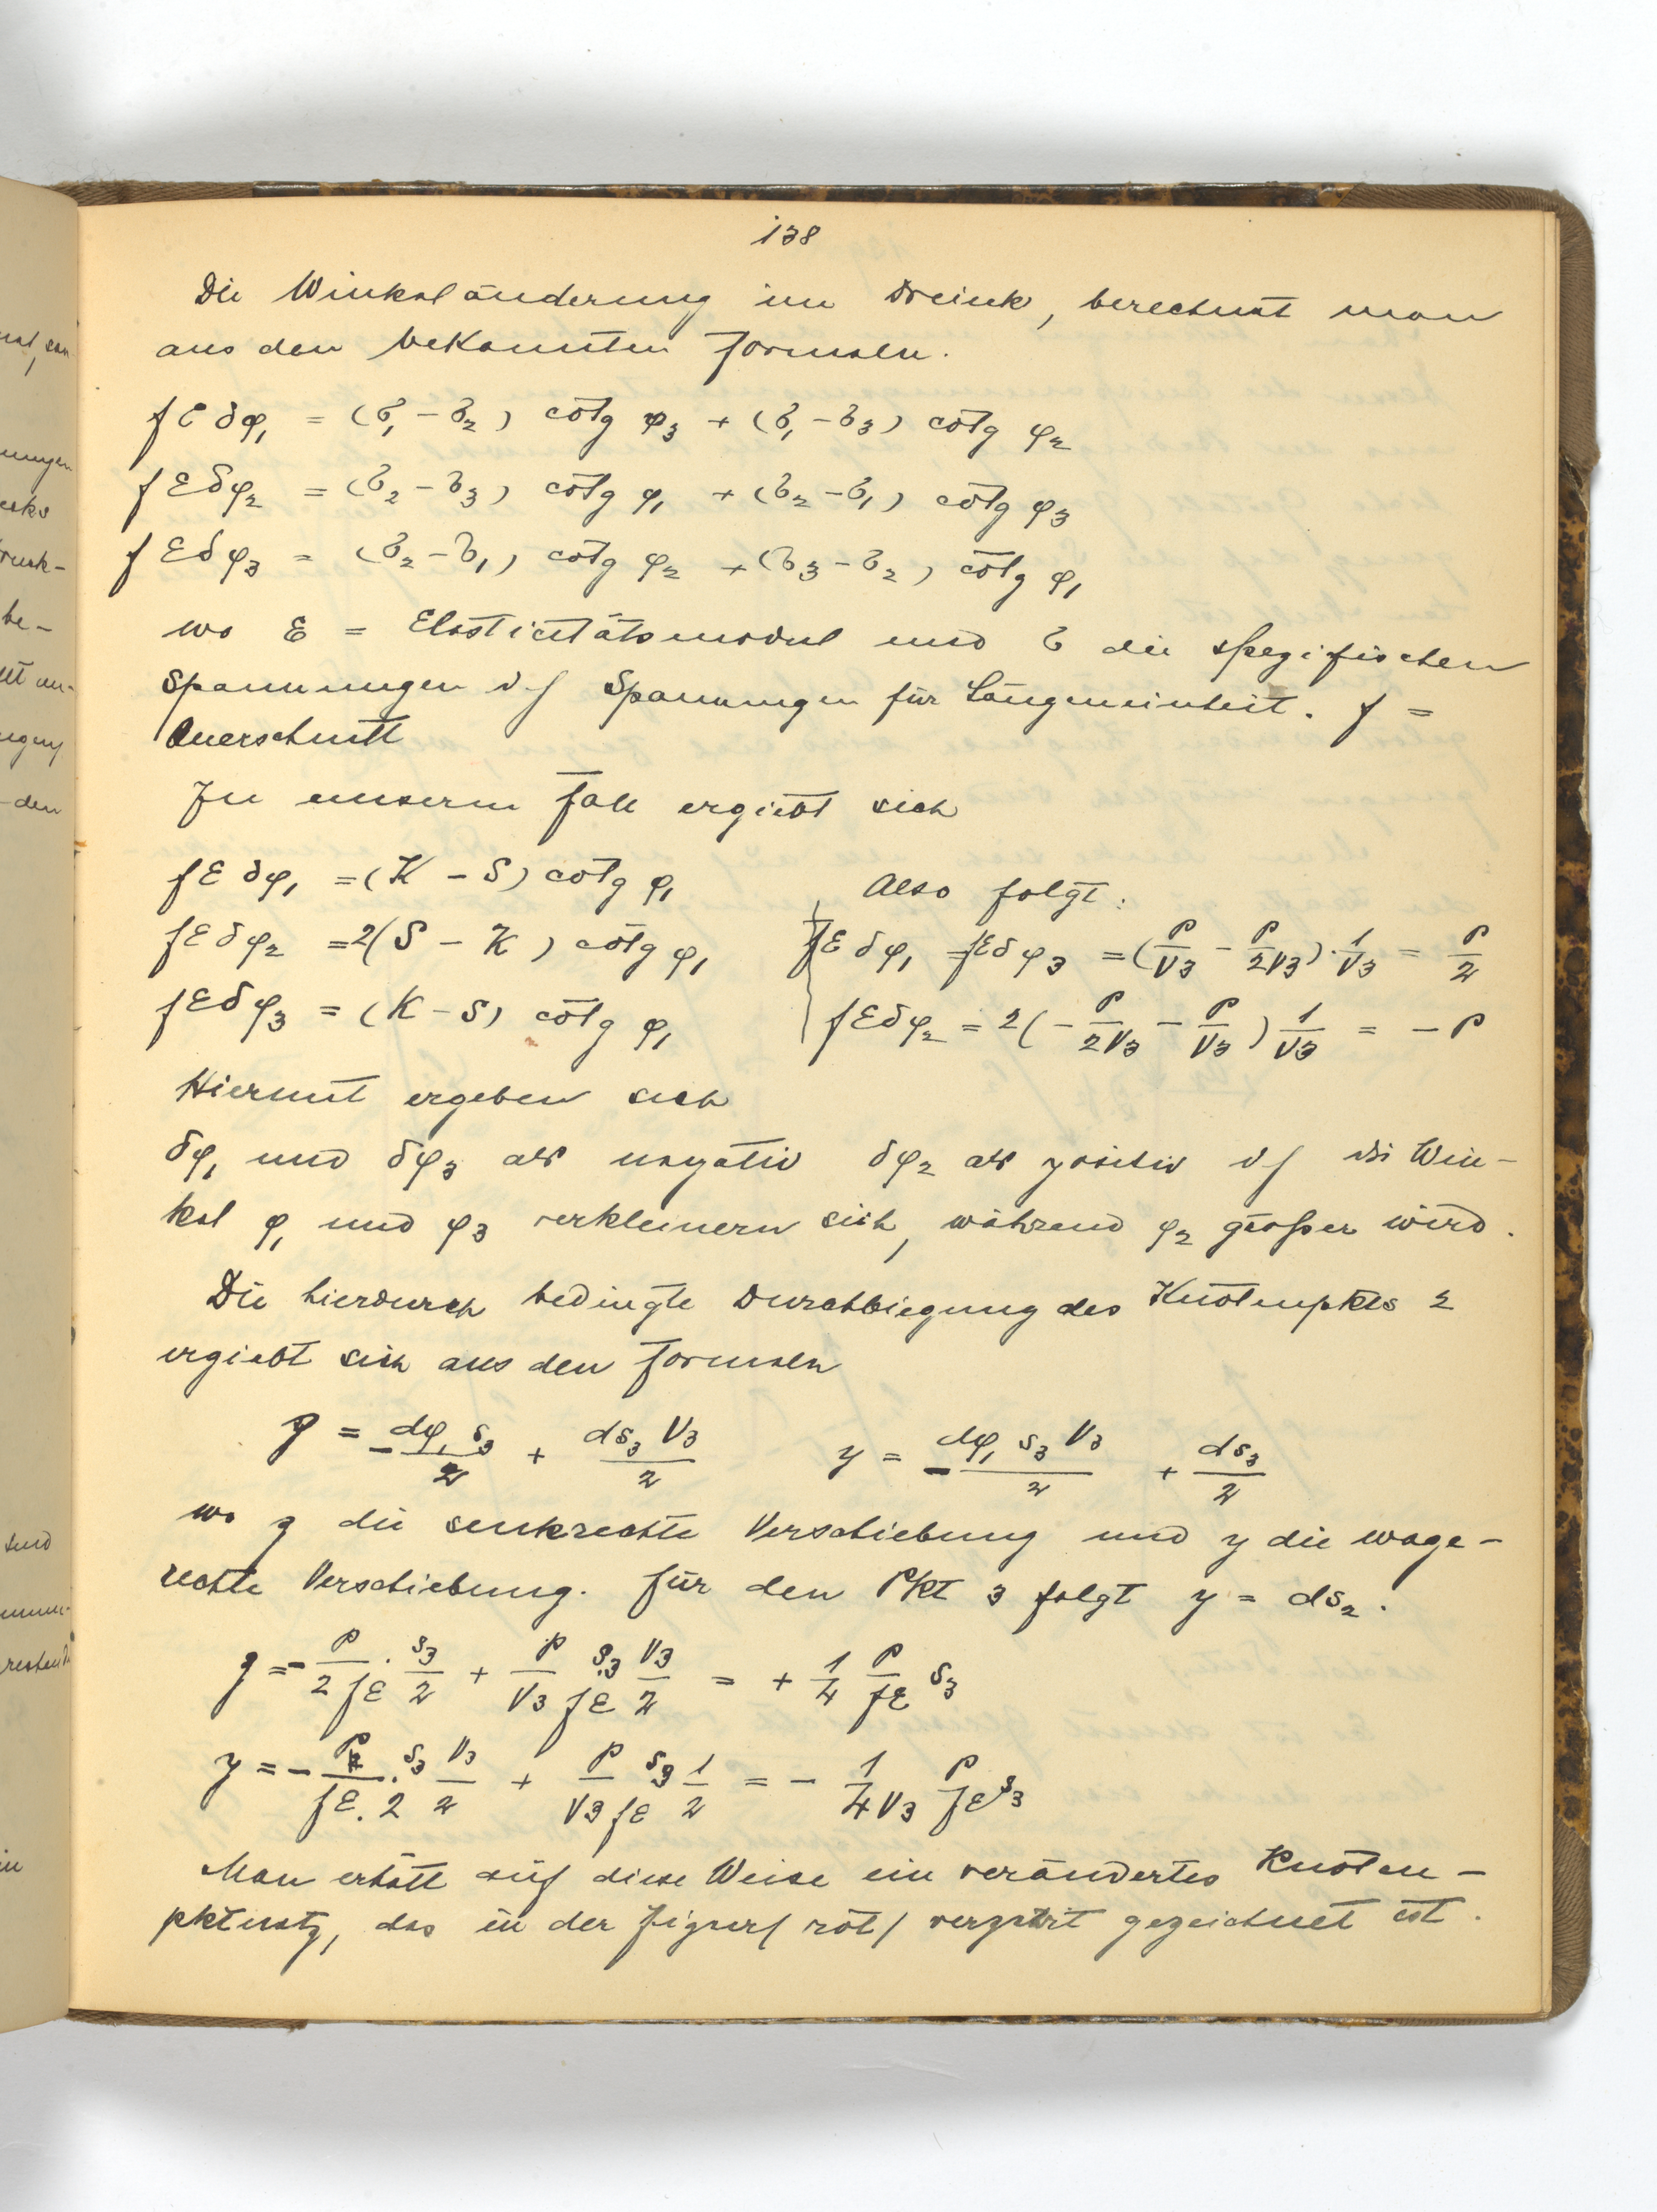 138
Die Winkeländerung im Dreieck, berechnet man
aus den bekannten Formeln.
fEδφ₁ = (σ₁ - σ₂) cotg φ₃ + (σ₁ - σ₃) cotg φ₂
fEδφ₂ = (σ₂ - σ₃) cotg φ₁ + (σ₂ - σ₁) cotg φ₃
fEδφ₃ = (σ₂ - σ₁) cotg φ₂ + (σ₃ - σ₂) cotg φ₁
wo E = Elasticitätsmodul und σ die spezifischen
Spannungen d/ Spannungen für Längeneinheit. f =
Querschnitt
In unserm Fall ergiebt sich
fEδφ₁ = (K - S) cotg φ₁
Also folgt:
fEδφ₂ = 2(S - K) cotg φ₁
fEδφ₁ = fEδφ₃ = (P/√3 - P/2√3) · 1/√3 = P/2
fEδφ₃ = (K - S) cotg φ₁
fEδφ₂ = 2(- P/2√3 - P/√3) 1/√3 = - P
Hiermit ergeben sich
δφ₁ und δφ₃ als negativ δφ₂ als positiv d/ die Win-
kel φ₁ und φ₃ verkleinern sich, während φ₂ größer wird.
Die hierdurch bedingte Durchbiegung des Knotenpkts 2
ergiebt sich aus den Formeln
z = - dφ₁ s₃/2 + ds₃ √3/2 y = - dφ₁ s₃ √3/2 + ds₃/2
wo z die senkrechte Verschiebung und y die wage-
rechte Verschiebung. Für den Pkt 3 folgt y = ds₂.
z = - P/2fE · s₃/2 + P/√3fE s₃ √3/2 = + 1/4 P/fE s₃
y = - P/fE.2 · s₃ √3/2 + P/√3fE s₃ 1/2 = - 1/4√3 P/fE s₃
Man erhält auf diese Weise ein verändertes Knoten-
pktnetz, das in der Figur/ rot/ verzerrt gezeichnet ist.